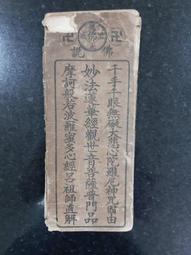 卍 卍
佛說
千手千眼無礙大悲心陀羅尼神咒習由
妙法蓮華經觀世音菩薩普門品
摩訶般若波羅蜜多心經呂祖師直解